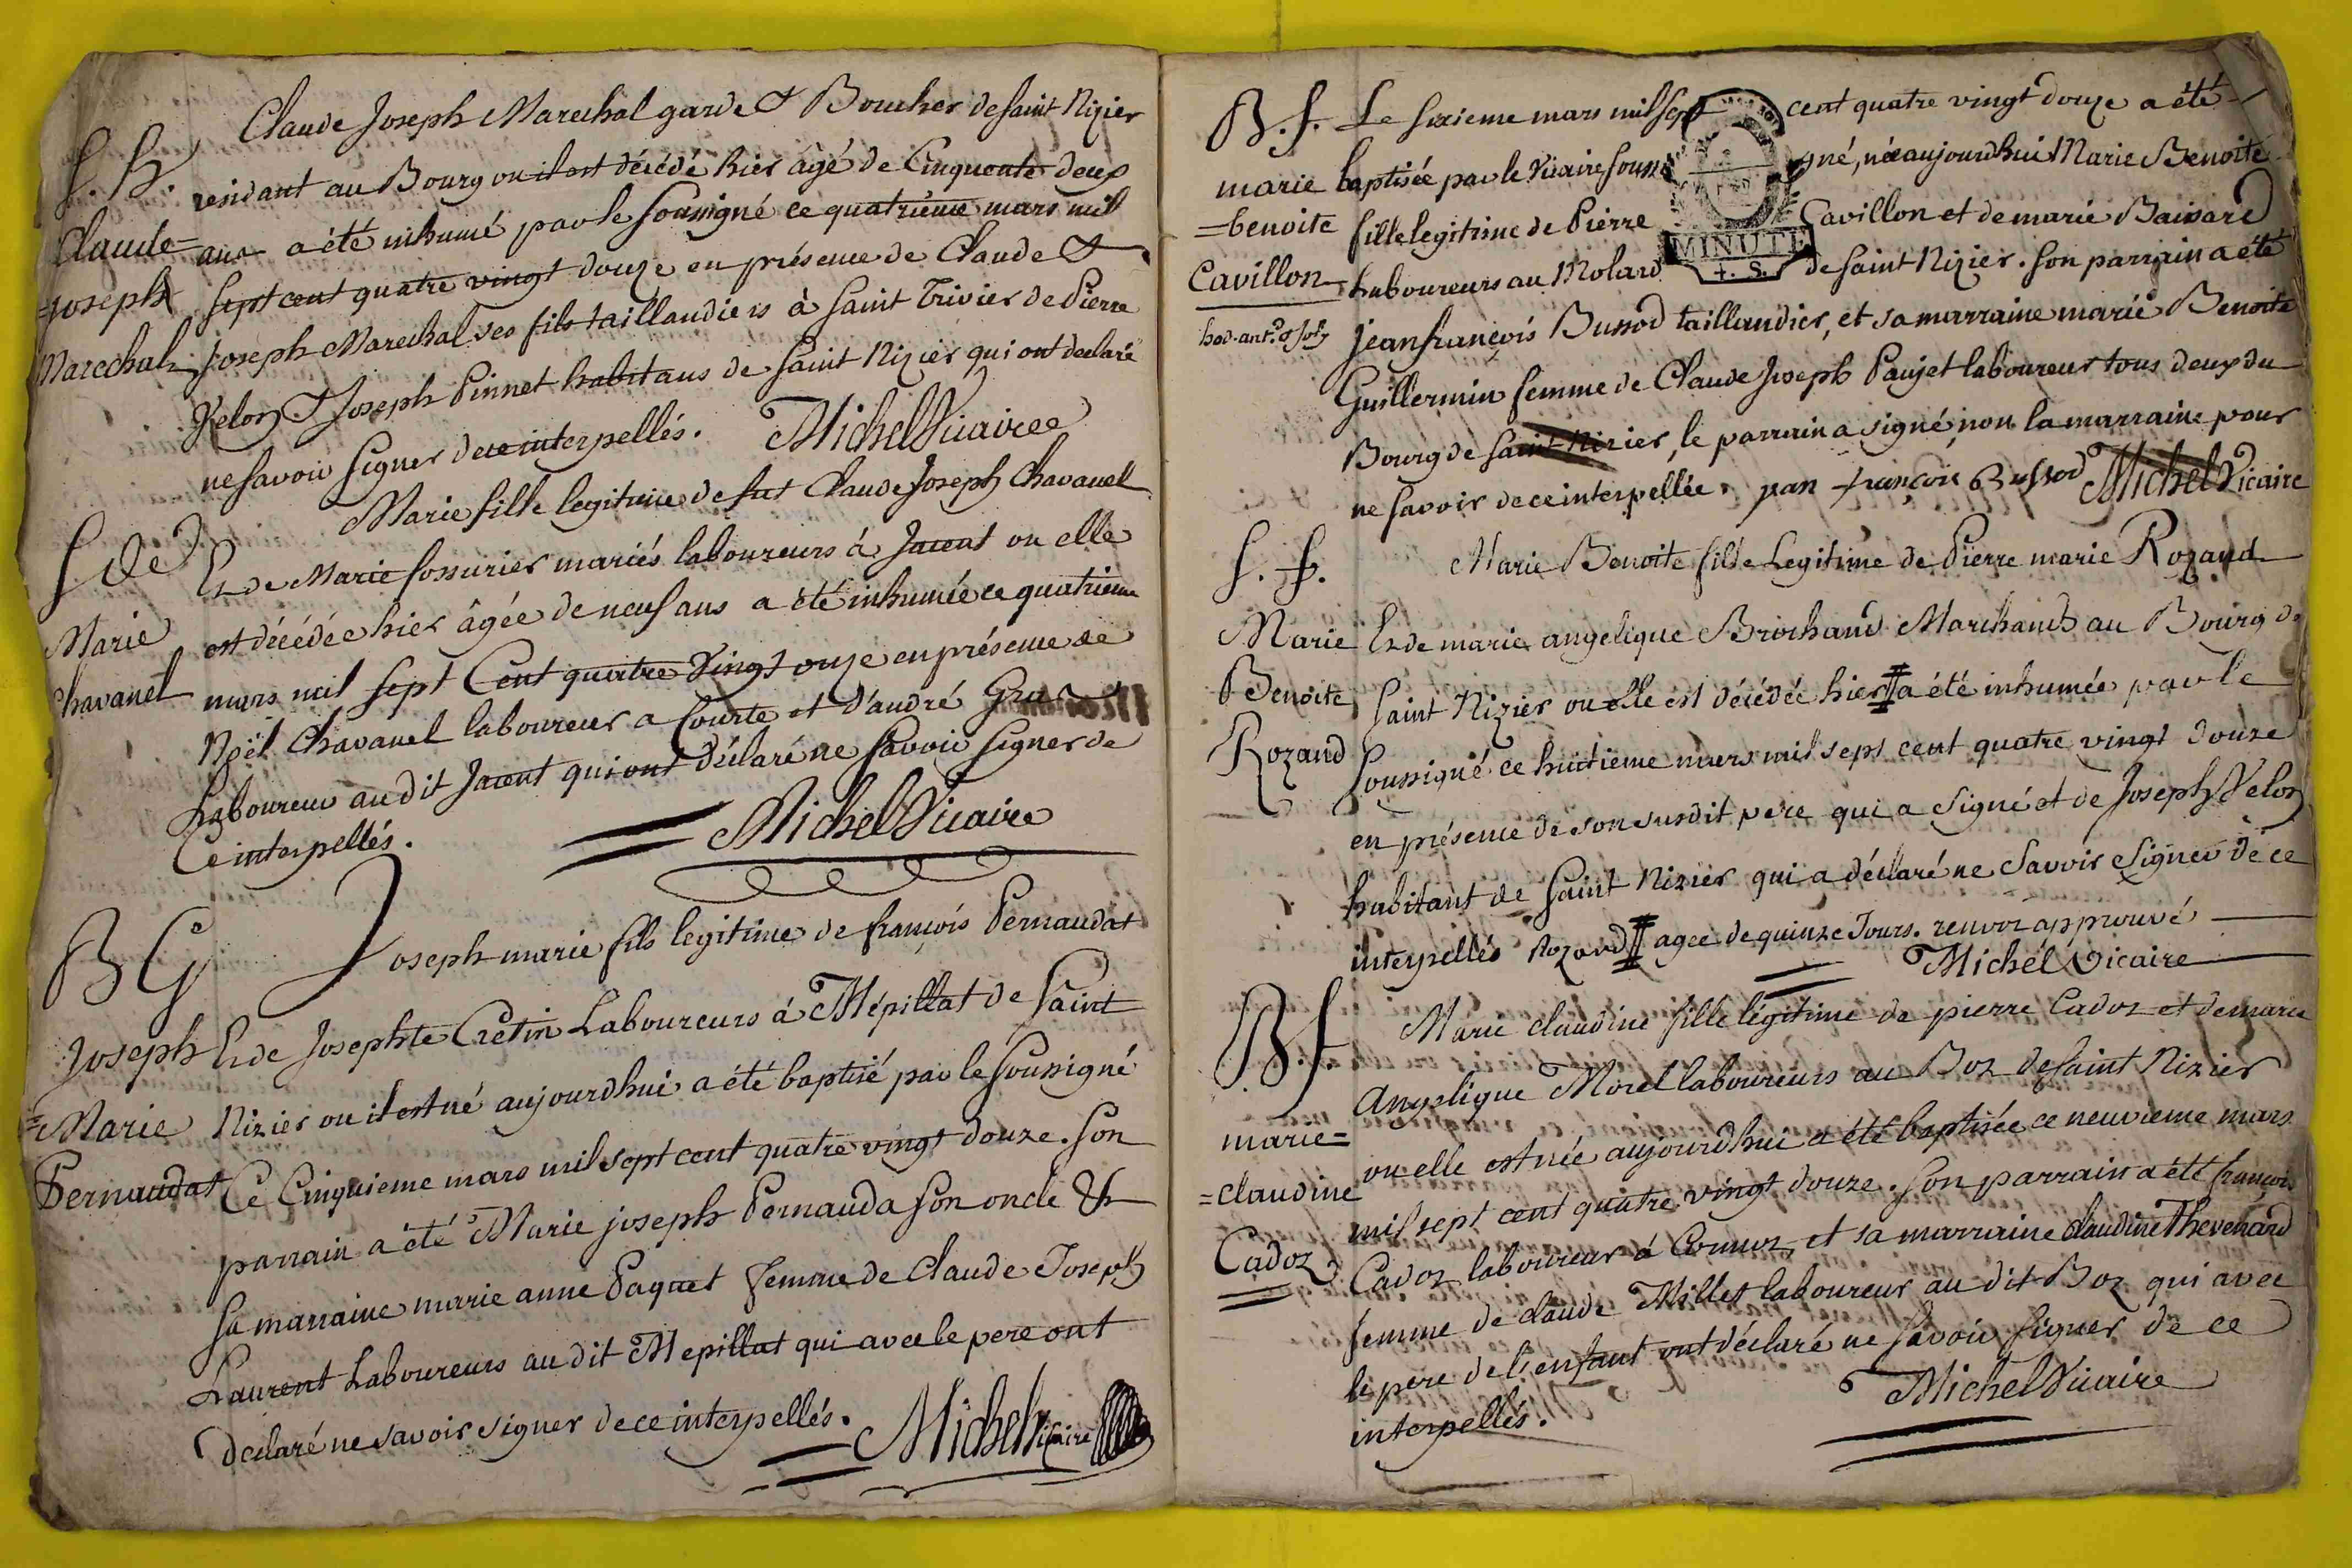 Claude Joseph Marechal garde & Boucher de saint Nizier
S. h.
residant au Bourg ou il est décédé hier âgé de Cinquante deux
Claude=
ans a été inhumé par le soussigné ce quatriéme mars mil
=joseph
sept cent quatre vingt douze en présence de Claude &
Marechal
joseph Marechal ses fils taillandiers à saint Trivier de Pierre
Velon & Joseph Pinnet habitans de saint Nizier qui ont declaré
ne savoir signer de ce interpellés. Michel Vicaire
Marie fille legitime de fut Claude Joseph Chavanel
S de
Et de Marie fossurier mariés laboureurs à Jacent ou elle
Marie
est décédée hier âgée de neuf ans a été inhumée ce quatrieme
Chavanel
mars mil sept Cent quatre Vingt ouze en présence de
Noël Chavanel laboureur a Courte et d'andré
Laboureur au dit Jacent qui ont déclaré ne savoir signer de
Ce interpellés. Michel Vicaire
B G
Joseph marie fils legitime de françois Pernaudat
Joseph
Et de Josephte Cretin Laboureurs à Mépillat de saint
=Marie
Nizier ou il est né aujourdhui a été baptisé par le soussigné
Pernaudat
Ce Cinquieme mars mil sept cent quatre vingt douze. son
parrain a été Marie joseph Pernauda son oncle &
sa marraine marie anne Paquet femme de Claude Joseph
Laurent Laboureurs au dit Mepillat qui avec le pere ont
déclaré ne savoir signer de ce interpellés. Michel Vicaire
B. f.
Le sixieme mars mil sept cent quatre vingt douze a été
marie
baptisée par le Vicaire soussigné, née aujourdhui Marie Benoite
=benoite
fille legitime de Pierre Cavillon et de marie Baisard
MINUTE
Cavillon
Laboureurs au Molard de saint Nizier. son parrain a été
+. S.
jean françois Bussod taillandier, et sa marraine marie Benoite
Guillermin femme de Claude Joseph Paujet laboureur tous deux du
Bourg de saint Nizier, le parrain a signé non la marraine pour
ne savoir de ce interpellée. jean françois Bussod Michel Vicaire
S. f.
Marie Benoite fille Legitime de Pierre marie Rozand
Marie
Et de marie angelique Brochand Marchands au Bourg de
Benoite
saint Nizier ou elle est décédée hier # a été inhumée par le
Rozand
Soussigné ce huitieme mars mil sept cent quatre vingt douze
en présence de son susdit pere qui a signé et de Joseph Velon
habitant de saint Nizier qui a déclaré ne savoir signer de ce
interpellés Rozand # agee de quinze Jours. renvoi approuvé
Michel Vicaire
B. f.
Marie claudine fille legitime de pierre Cadoz et de marie
Angelique Morel laboureurs au Boz de saint Nizier
marie=
ou elle est née aujourdhui a été baptisée ce neuvieme mars
=claudine
mil sept cent quatre vingt douze. son parrain a été françois
Cadoz
Cadoz laboureur à Cormoz, et sa marraine claudine Thevenard
femme de claude Millet laboureur au dit Boz qui avec
le pere de l'enfant ont déclaré ne savoir signer de ce
interpellés. Michel Vicaire